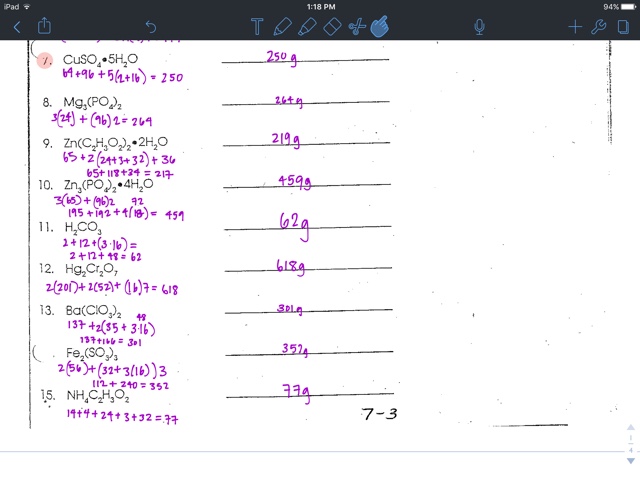 iPad 1:18 PM 94%
7. CuSO₄•5H₂O 250g
64+96+5(2+16) = 250
8. Mg₃(PO₄)₂ 264g
3(24) + (96)2 = 264
9. Zn(C₂H₃O₂)₂•2H₂O 219g
65+2(24+3+32)+36
65+118+34 = 217
10. Zn₃(PO₄)₂•4H₂O 459g
3(65)+(96)2 72
195+192+4(18) = 459
11. H₂CO₃ 62g
2+12+(3·16) =
2+12+48 = 62
12. Hg₂Cr₂O₇ 618g
2(201)+2(52)+(16)7 = 618
13. Ba(ClO₃)₂ 48 301g
137+2(35+3·16)
137+166 = 301
Fe₂(SO₃)₃ 352g
2(56)+(32+3(16))3
112+240 = 352
15. NH₄C₂H₃O₂ 77g
14+4+24+3+32 = 77
7-3
1
4